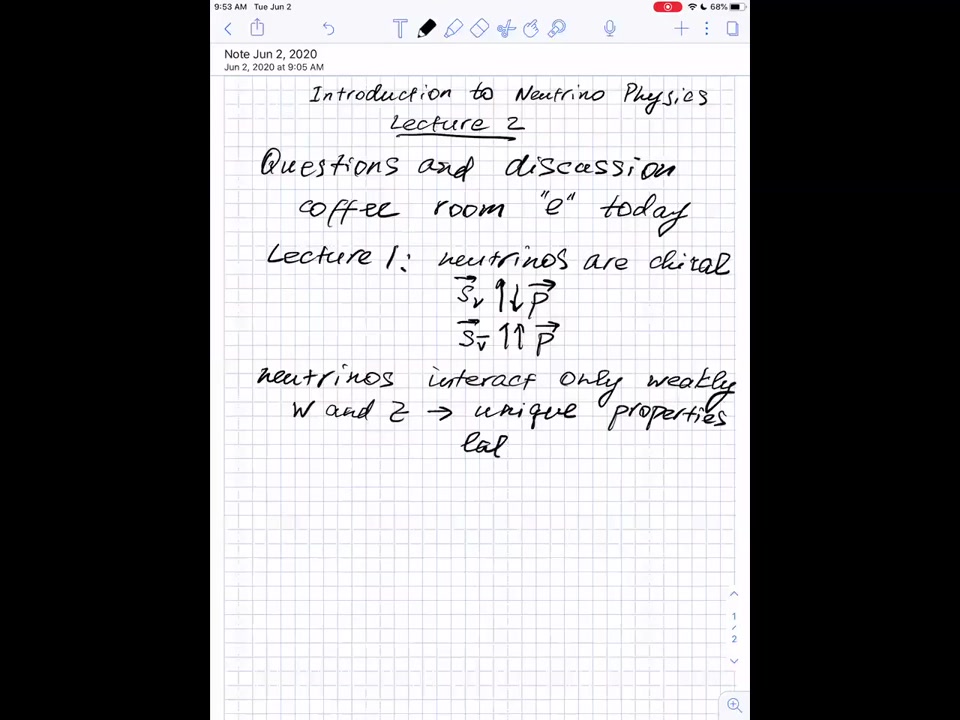 9:53 AM Tue Jun 2
68%
T
Note Jun 2, 2020
Jun 2, 2020 at 9:05 AM
Introduction to Neutrino Physics
Lecture 2
Questions and discussion
coffee room "e" today
Lecture 1: neutrinos are chiral
s⃗ν ↑↓ p⃗
s⃗ν̄ ↑↑ p⃗
neutrinos interact only weakly
W and Z → unique properties
1
/
2